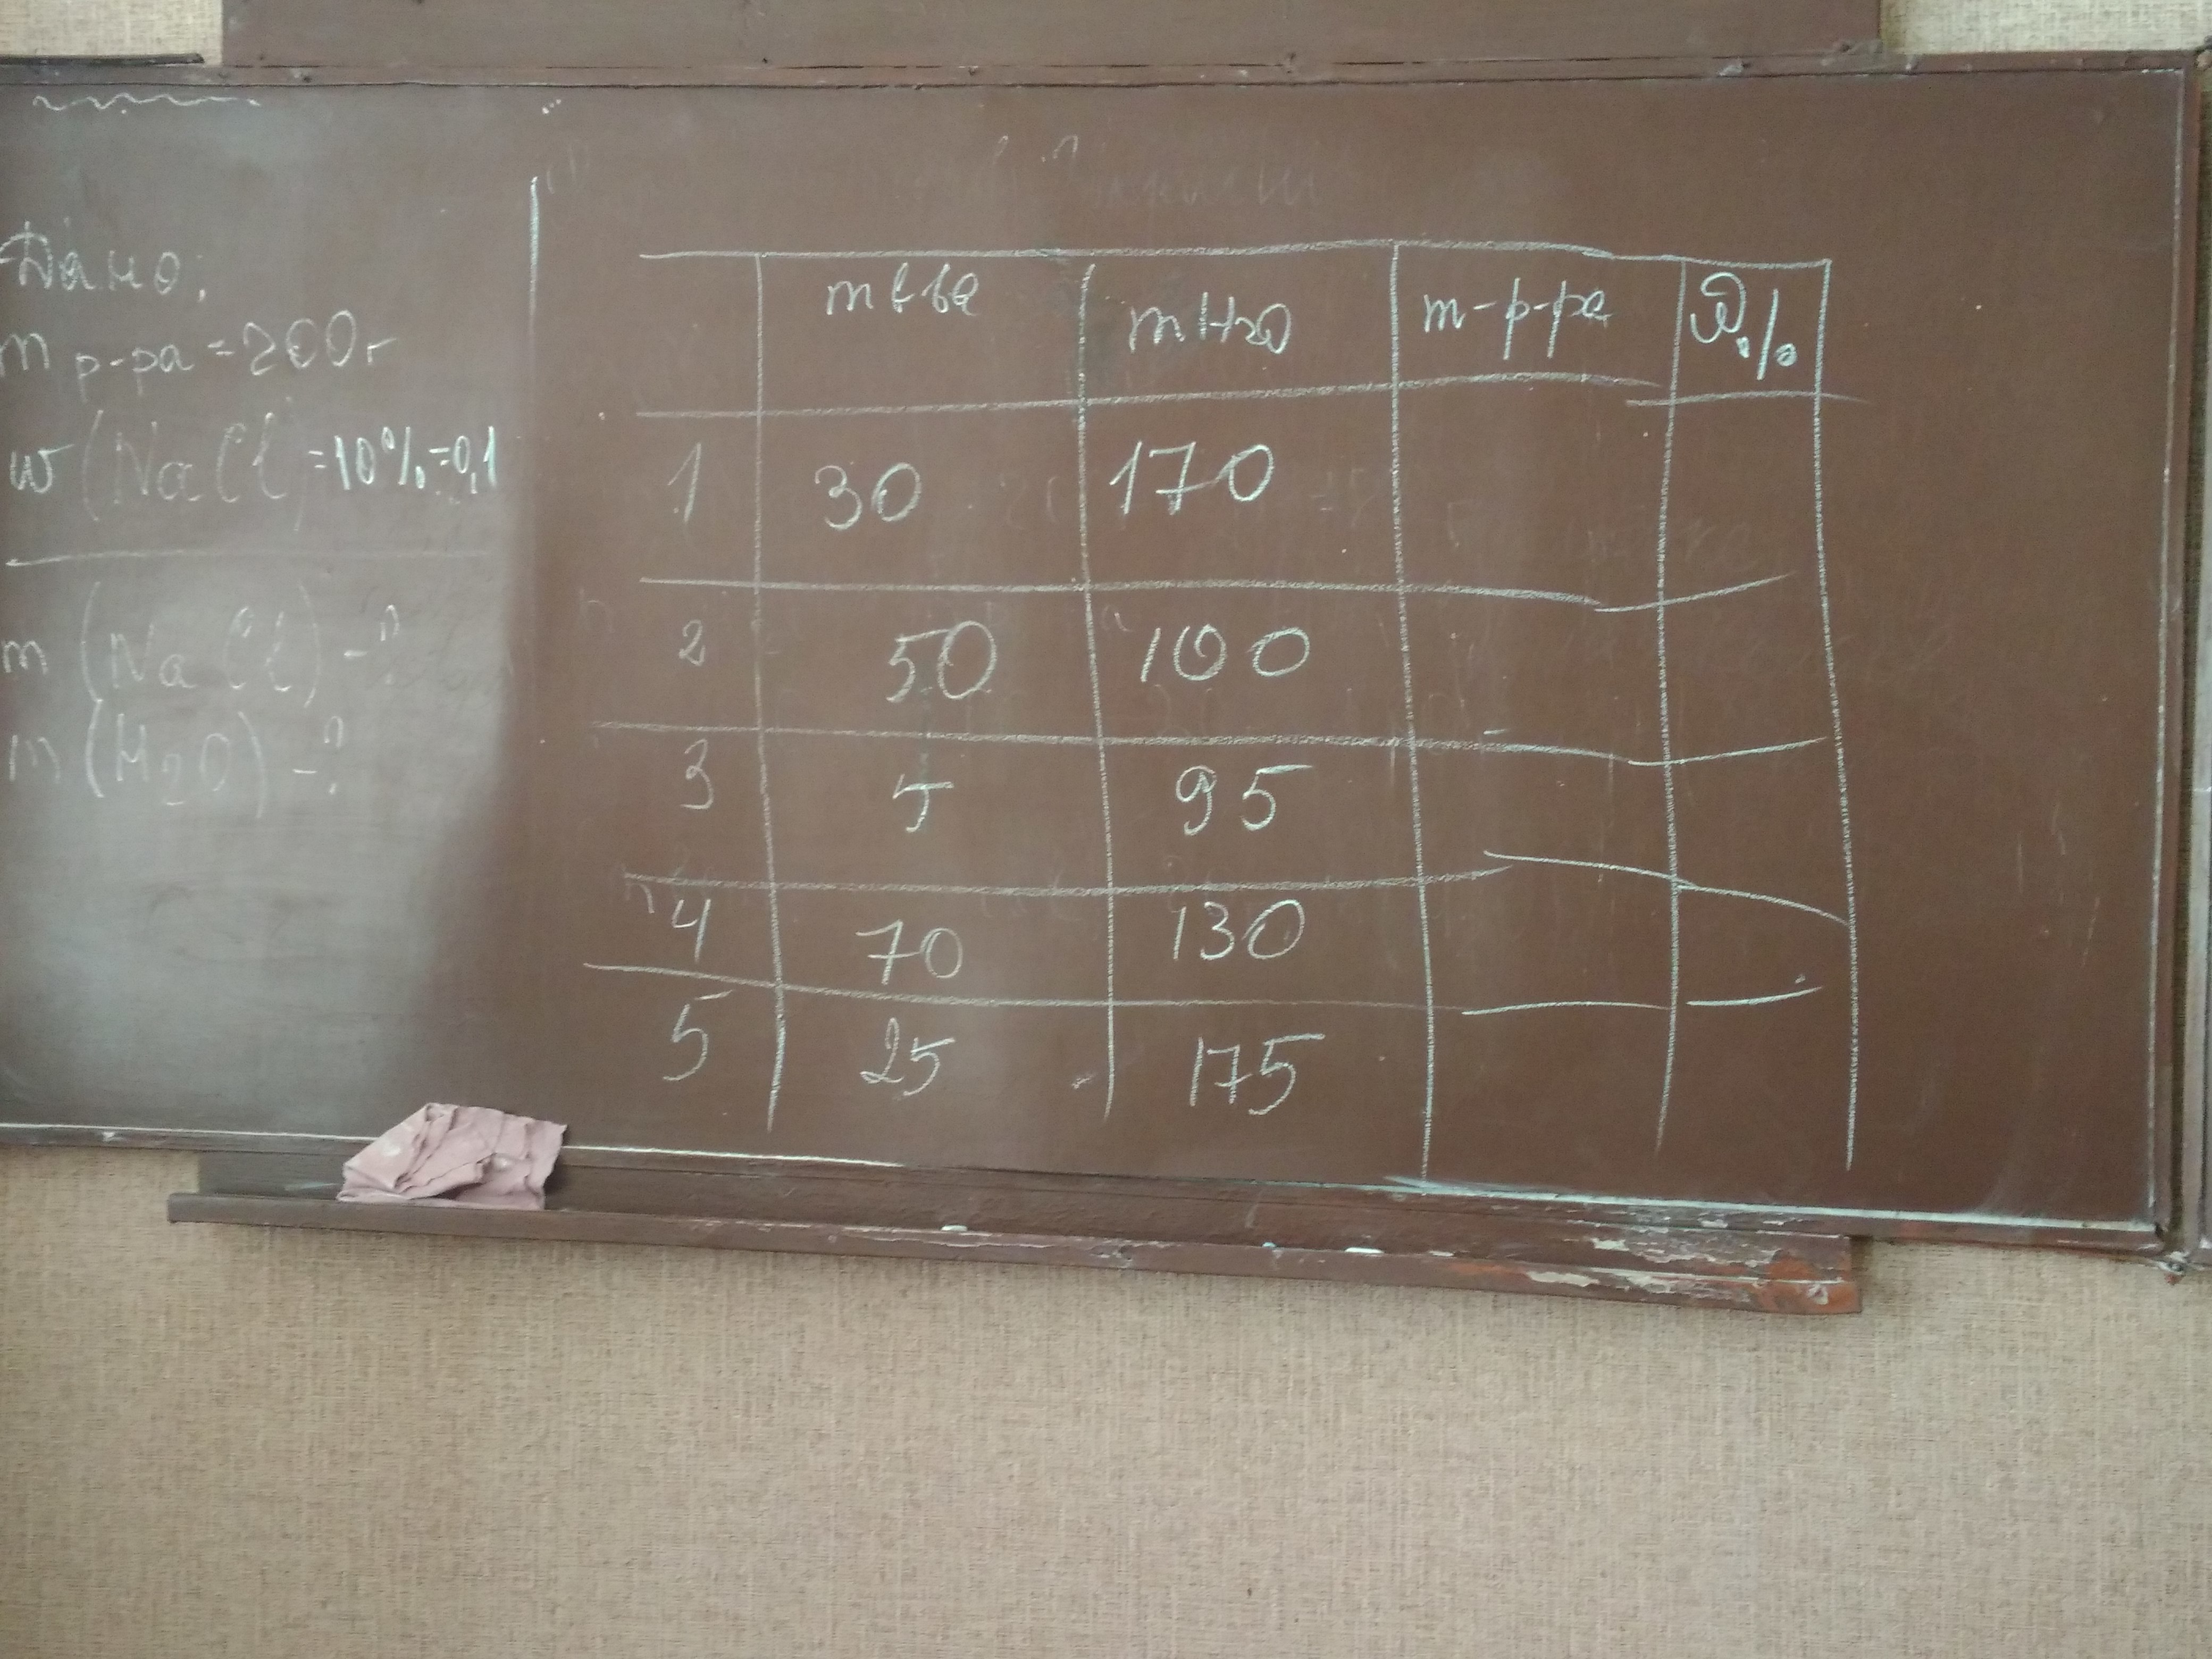 Дано:
m р-ра = 200 г
w (NaCl) = 10% = 0,1
m (NaCl) - ?
m (H2O) - ?
m в-ва m H2O m-р-ра W%
1 30 170
2 50 100
3 5 95
4 70 130
5 25 175